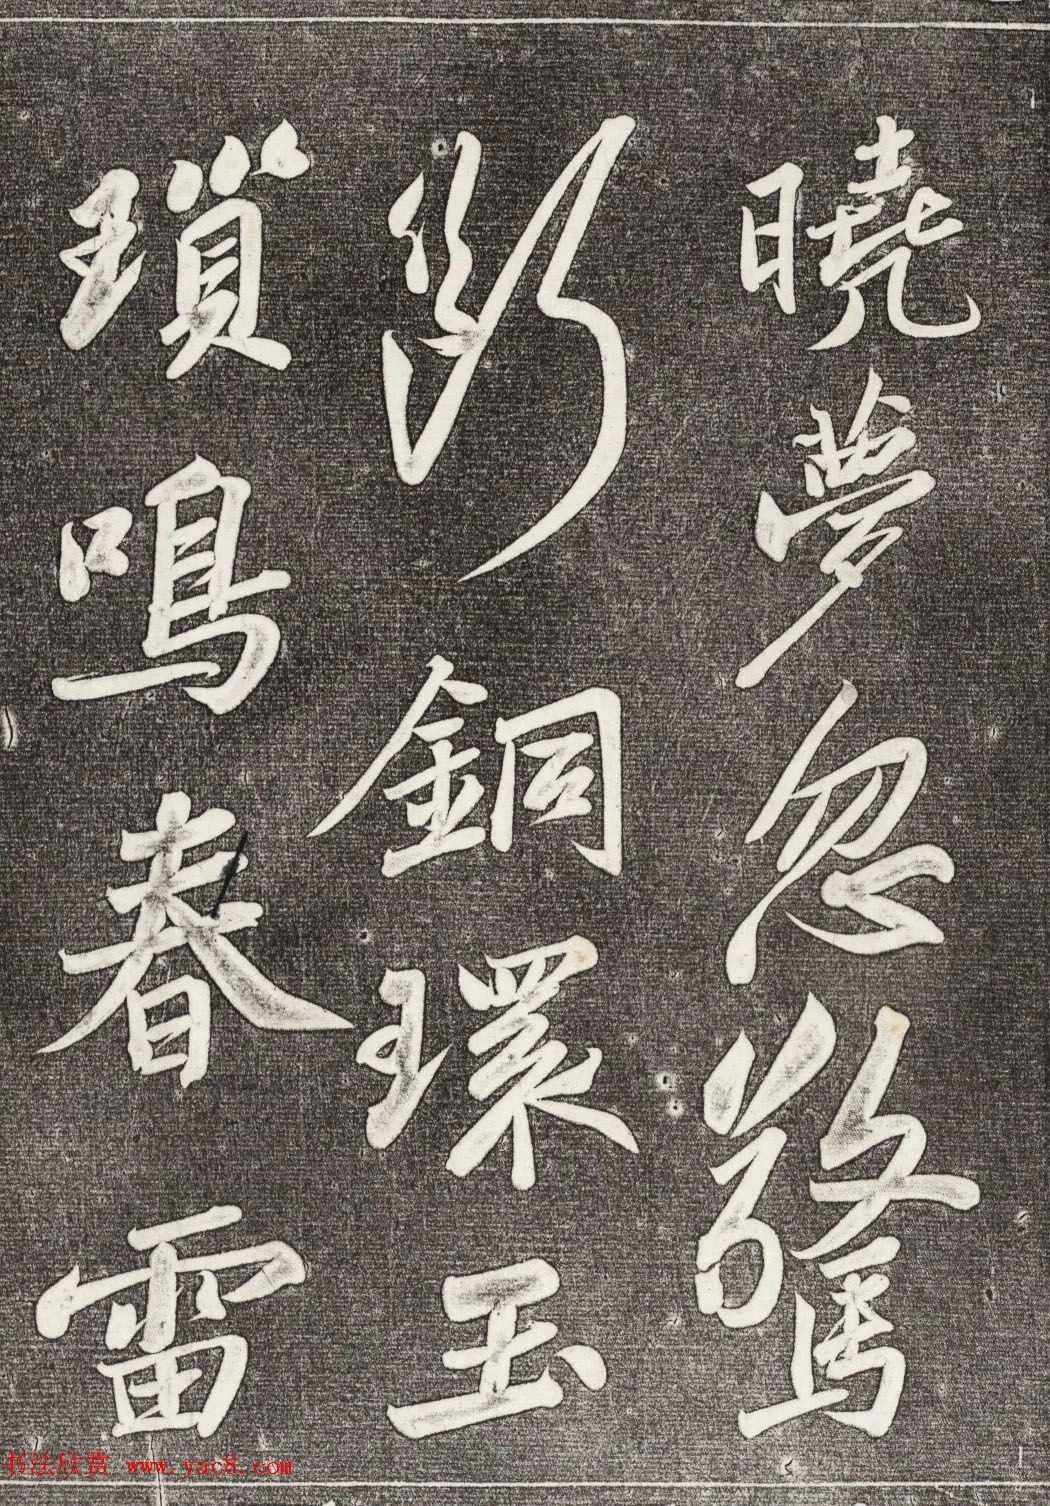 曉夢忽驚
斷銅環玉
瑣鳴春雷
书法欣赏 www.yac8.com